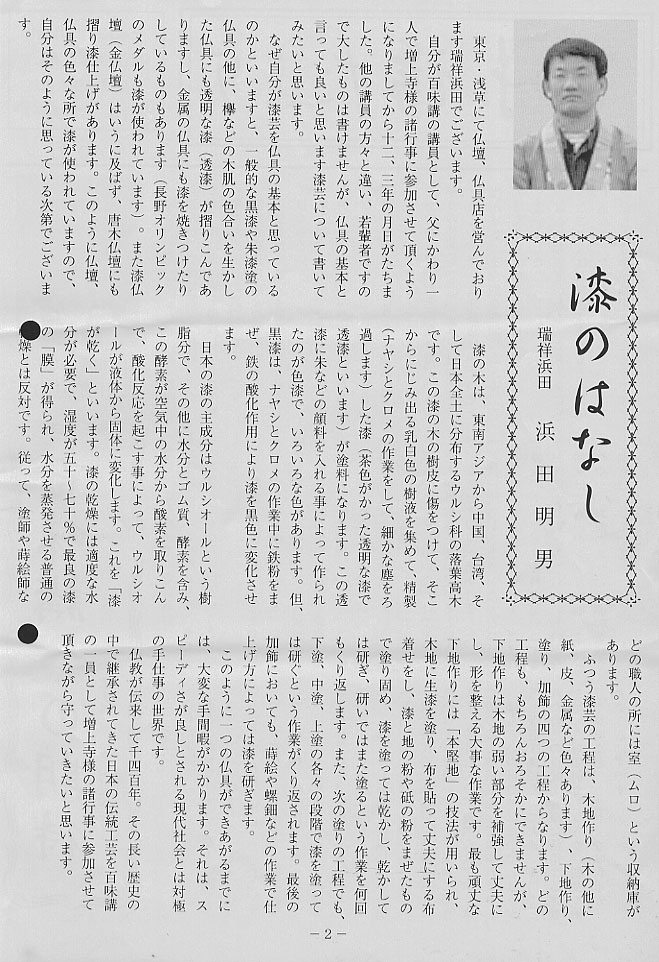 漆のはなし
瑞祥浜田 浜田明男
東京・浅草にて仏壇、仏具店を営んでおり
ます瑞祥浜田でございます。
自分が百味講の講員として、父にかわり一
人で増上寺様の諸行事に参加させて頂くよう
になりましてから十二、三年の月日がたちま
した。他の講員の方々と違い、若輩者ですの
で大したものは書けませんが、仏具の基本と
言っても良いと思います漆芸について書いて
みたいと思います。
なぜ自分が漆芸を仏具の基本と思っている
のかといいますと、一般的な黒漆や朱漆塗の
仏具の他に、欅などの木肌の色合いを生かし
た仏具にも透明な漆（透漆）が摺りこんであ
りますし、金属の仏具にも漆を焼きつけたり
しているものもあります（長野オリンピック
のメダルも漆が使われています）。また漆仏
壇（金仏壇）はいうに及ばず、唐木仏壇にも
摺り漆仕上げがあります。このように仏壇、
仏具の色々な所で漆が使われていますので、
自分はそのように思っている次第でございま
す。
漆の木は、東南アジアから中国、台湾、そ
して日本全土に分布するウルシ科の落葉高木
です。この漆の木の樹皮に傷をつけて、そこ
からにじみ出る乳白色の樹液を集めて、精製
（ナヤシとクロメの作業をして、細かな塵をろ
過します）した漆（茶色がかった透明な漆で
透漆といいます）が塗料になります。この透
漆に朱などの顔料を入れる事によって作られ
たのが色漆で、いろいろな色があります。但、
黒漆は、ナヤシとクロメの作業中に鉄粉をま
ぜ、鉄の酸化作用により漆を黒色に変化させ
ます。
日本の漆の主成分はウルシオールという樹
脂分で、その他に水分とゴム質、酵素を含み、
この酵素が空気中の水分から酸素を取りこん
で、酸化反応を起こす事によって、ウルシオ
ールが液体から固体に変化します。これを「漆
が乾く」といいます。漆の乾燥には適度な水
分が必要で、湿度が五十～七十％で最良の漆
の「膜」が得られ、水分を蒸発させる普通の
燥とは反対です。従って、塗師や蒔絵師な
どの職人の所には室（ムロ）という収納庫が
あります。
ふつう漆芸の工程は、木地作り（木の他に
紙、皮、金属など色々あります）、下地作り、
塗り、加飾の四つの工程からなります。どの
工程も、もちろんおろそかにできませんが、
下地作りは木地の弱い部分を補強して丈夫に
し、形を整える大事な作業です。最も頑丈な
下地作りには「本堅地」の技法が用いられ、
木地に生漆を塗り、布を貼って丈夫にする布
着せをし、漆と地の粉や砥の粉をまぜたもの
で塗り固め、漆を塗っては乾かし、乾かして
は研ぎ、研いではまた塗るという作業を何回
もくり返します。また、次の塗りの工程でも、
下塗、中塗、上塗の各々の段階で漆を塗って
は研ぐという作業がくり返されます。最後の
加飾においても、蒔絵や螺鈿などの作業で仕
上げ方によっては漆を研ぎます。
このように一つの仏具ができあがるまでに
は、大変な手間暇がかかります。それは、ス
ピーディさが良しとされる現代社会とは対極
の手仕事の世界です。
仏教が伝来して千四百年。その長い歴史の
中で継承されてきた日本の伝統工芸を百味講
の一員として増上寺様の諸行事に参加させて
頂きながら守っていきたいと思います。
－2－